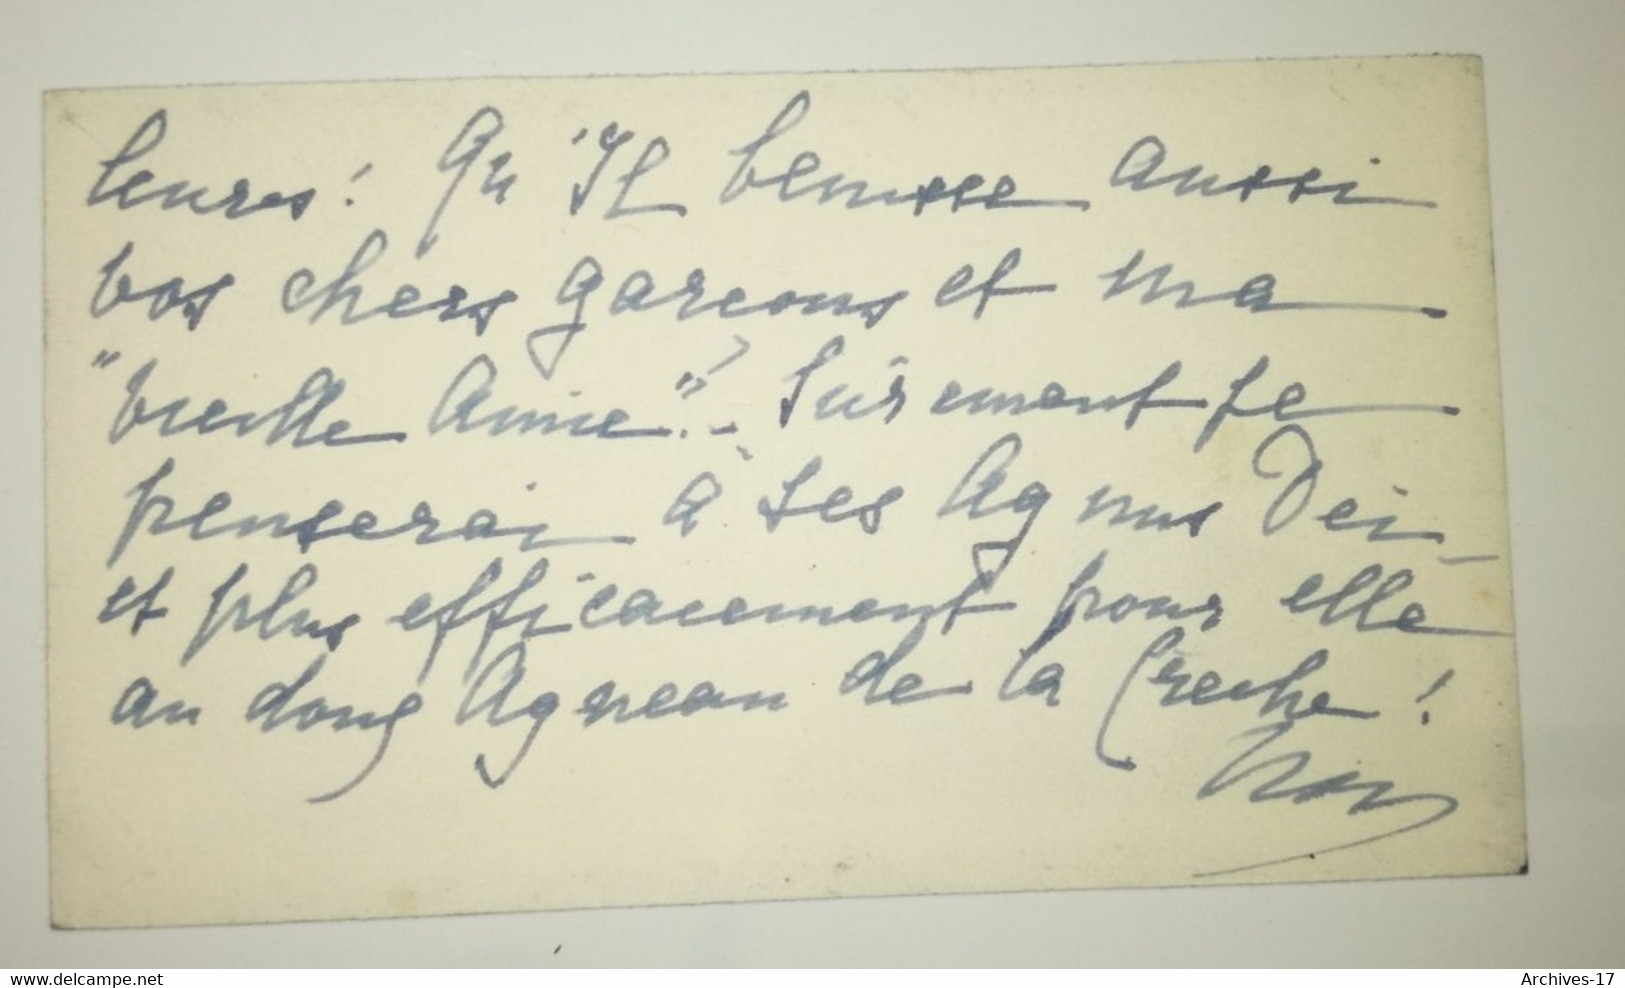 leures! Qu'Il benisse aussi
vos chers garcons et ma
"vieille Amie". - Surement je
penserai à ses Agnus Dei -
et plus efficacement pour elle
au doux Agneau de la Creche!
delcampe.net
Archives-17